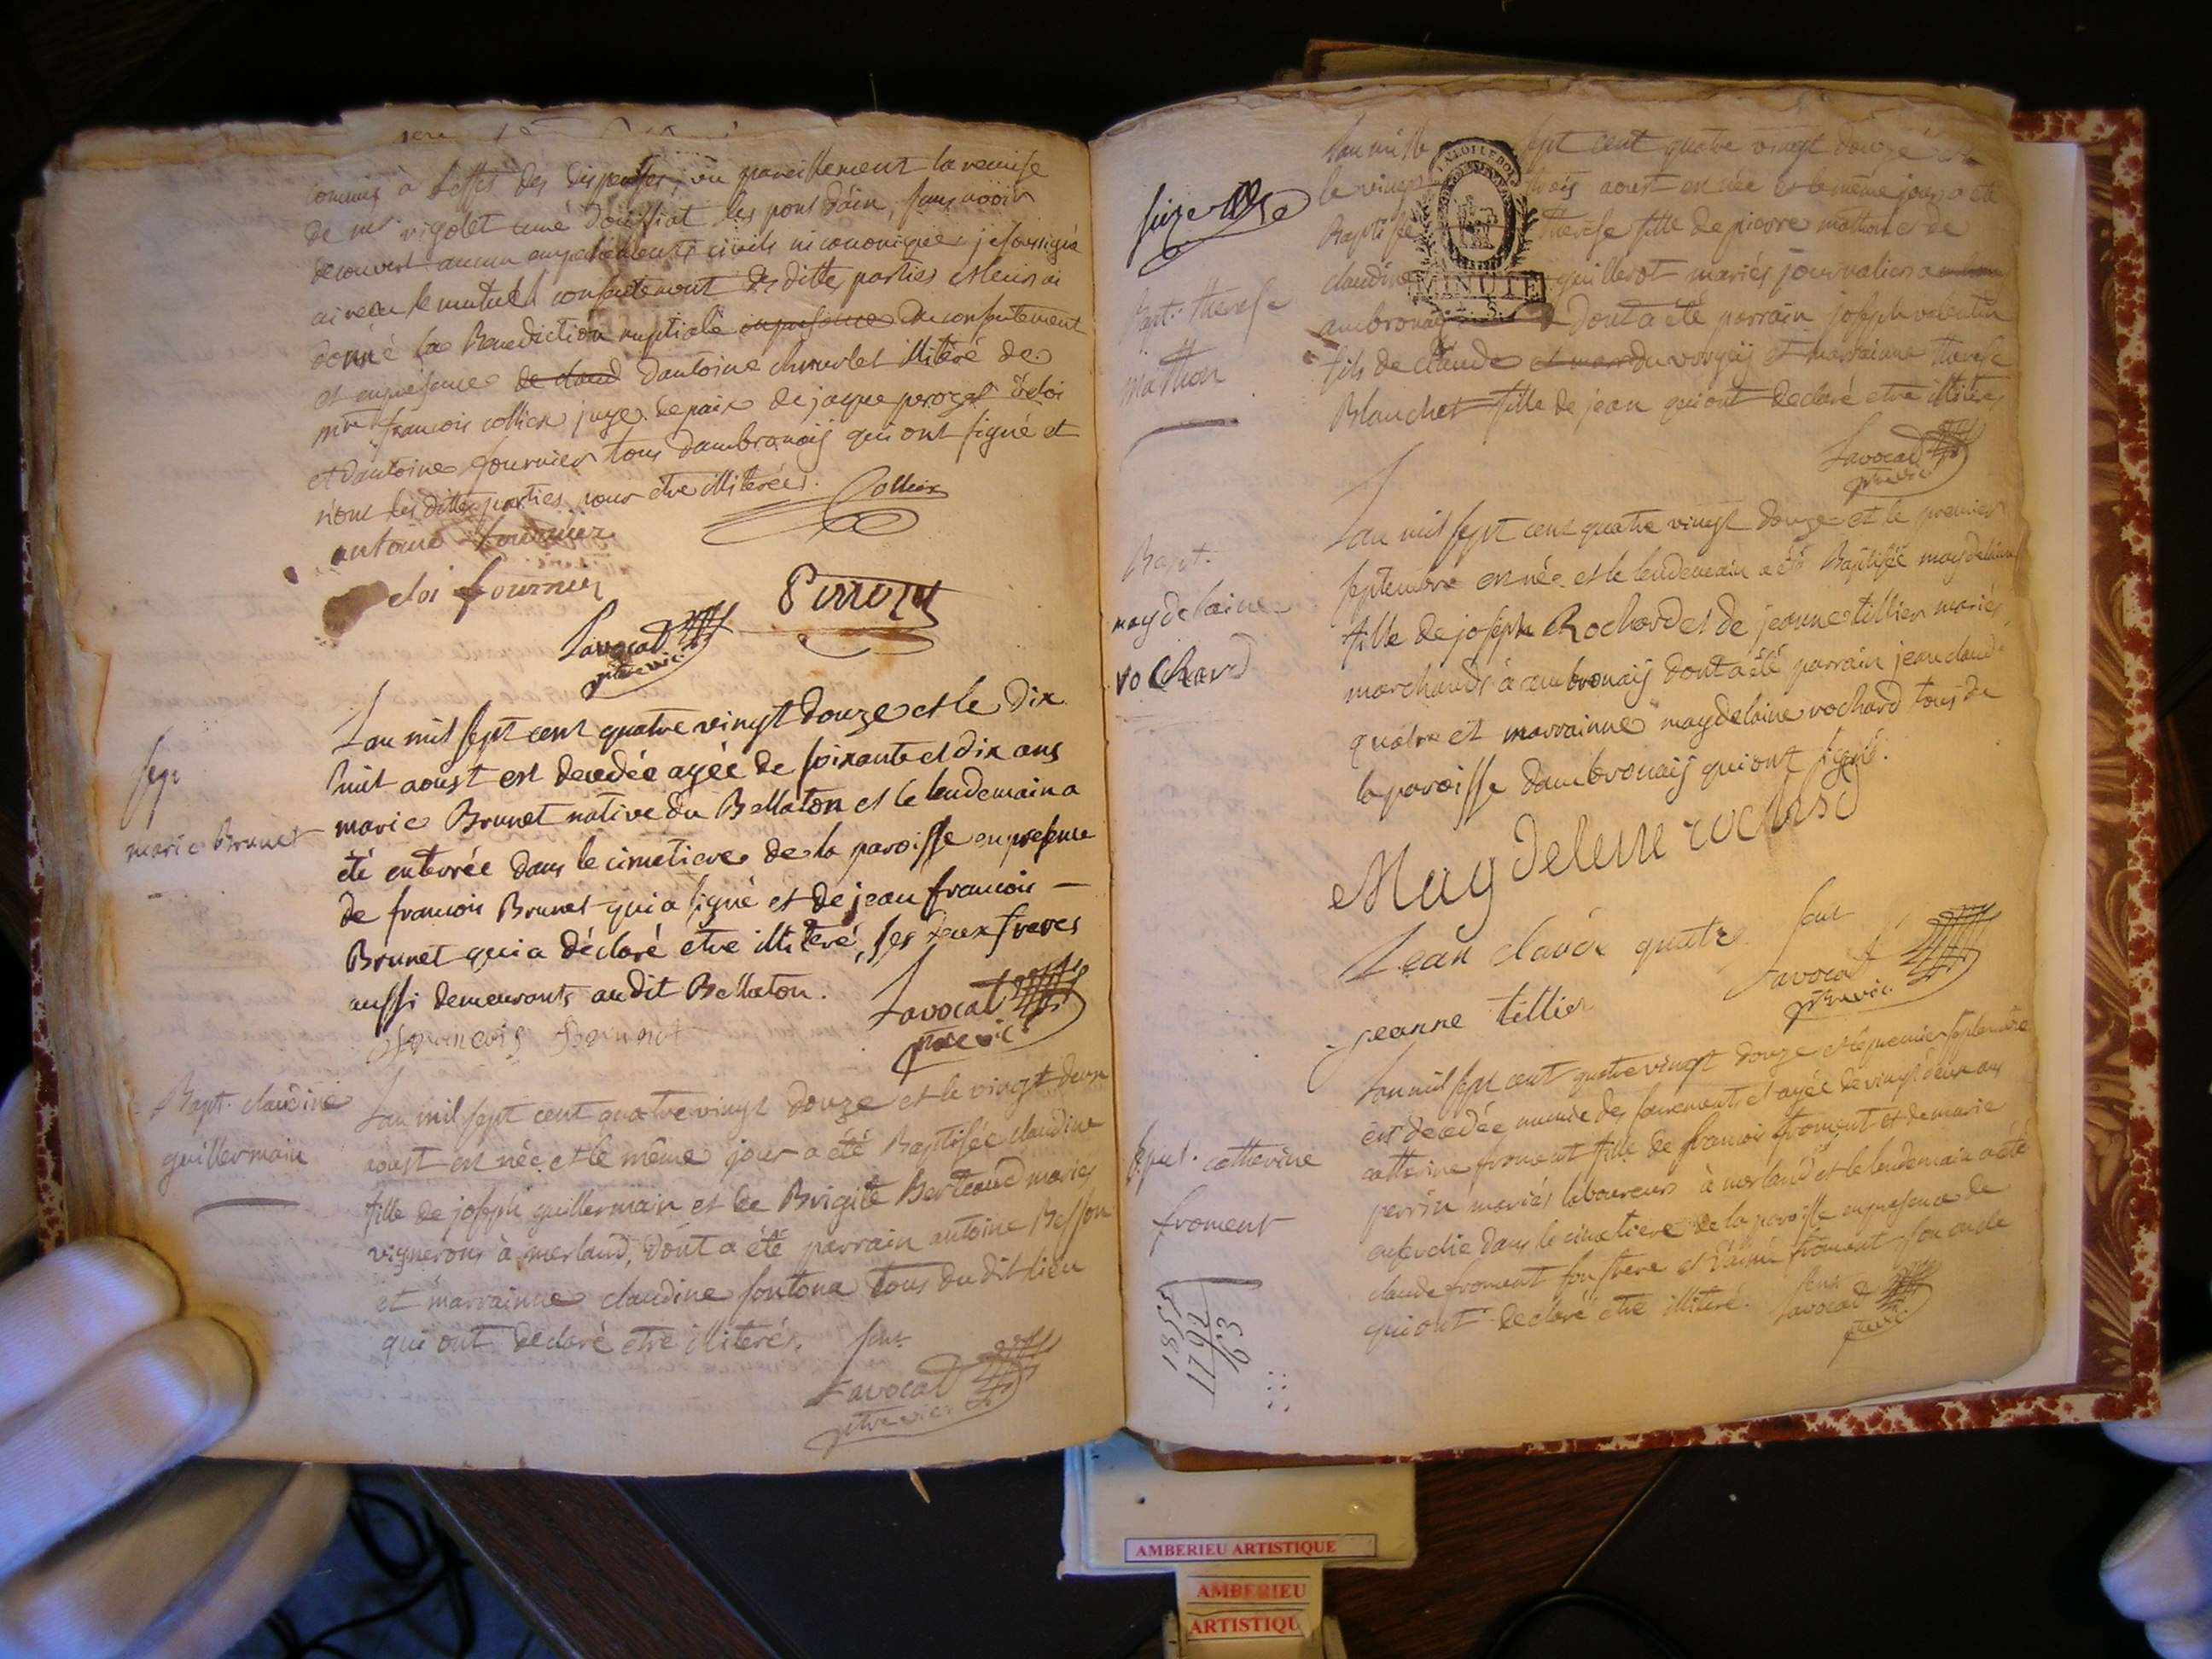 commis à l'effet des dispenses, vu pareillement la remise
de mr vigolet curé les pont dain, sans avoir
decouvert aucun empechements civils ni canonique je soussigné
ai recu le mutuel consentement des dittes parties et leur ai
donné la Benediction nuptiale en presence du consentement
et en presence de claud d'antoine illitéré de
mre francois collier juge de paix de jaque perozet d'eloi
et d'antoine fournier tous dambronaij qui ont signé et
non les dittes parties pour etre illiterées.
Collier
antoine fournier
eloi fournier
Perrozet
Lavocat
ptre vic.
sep.
marie Brunet
L'an mil sept cent quatre vingt douze et le dix
huit aoust est decedée agée de soixante et dix ans
marie Brunet native du Bellaton et le lendemain a
été enterrée dans le cimetiere de la paroisse en presence
de francois Brunet qui a signé et de jean francois —
Brunet qui a déclaré etre illiteré, ses deux freres
aussi demeurants au dit Bellaton.
francois Brunet
Lavocat
ptre vic.
Bapt. claudine
guillermain
L'an mil sept cent quatre vingt douze et le vingt deux
aoust est née et le même jour a été Baptisée claudine
fille de joseph guillermain et de Brigite Berteaud mariés
vignerons à merland, dont a été parrain antoine Besson
et marrainne claudine fontana tous du dit lieu
qui ont declaré etre illiterés.
Lavocat
ptre vic.
Bapt. therese
mathon
L'an mille sept cent quatre vingt douze et
le vingt trois aoust est née et le même jour a été
Baptisée therese fille de pierre mathon et de
claudine guillerot mariés journaliers
LA LOI LE ROI
MINUTE
ambronaij dont a été parrain joseph valentin
fils de claude et mar du vorgeij et marrainne therese
Blanchet fille de jean qui ont declaré etre illiterés
Lavocat
ptre vic.
Bapt.
magdelaine
rochard
L'an mil sept cent quatre vingt douze et le premier
septembre est née et le lendemain a été Baptisée magdelaine
fille de joseph Rochard et de jeanne tillier mariés
marchands à ambronaij dont a été parrain jean claude
quatre et marrainne magdelaine rochard tous de
la paroisse dambronaij qui ont signé.
Magdelene rochard
Jean claude quatre
Lavocat
ptre vic.
jeanne tillier
Sepul. catherine
froment
L'an mil sept cent quatre vingt douze et le premier septembre
est decedée munie des sacrements et agée de vingt deux ans
catherine froment fille de francois froment et de marie
perrin mariés laboureurs à merland et le lendemain a été
ensevelie dans le cimetiere de la paroisse en presence de
claude froment son frere et froment son oncle
qui ont declaré etre illiteré.
Lavocat
ptre vic.
1855
1792
63
AMBERIEU ARTISTIQUE
AMBERIEU
ARTISTIQU